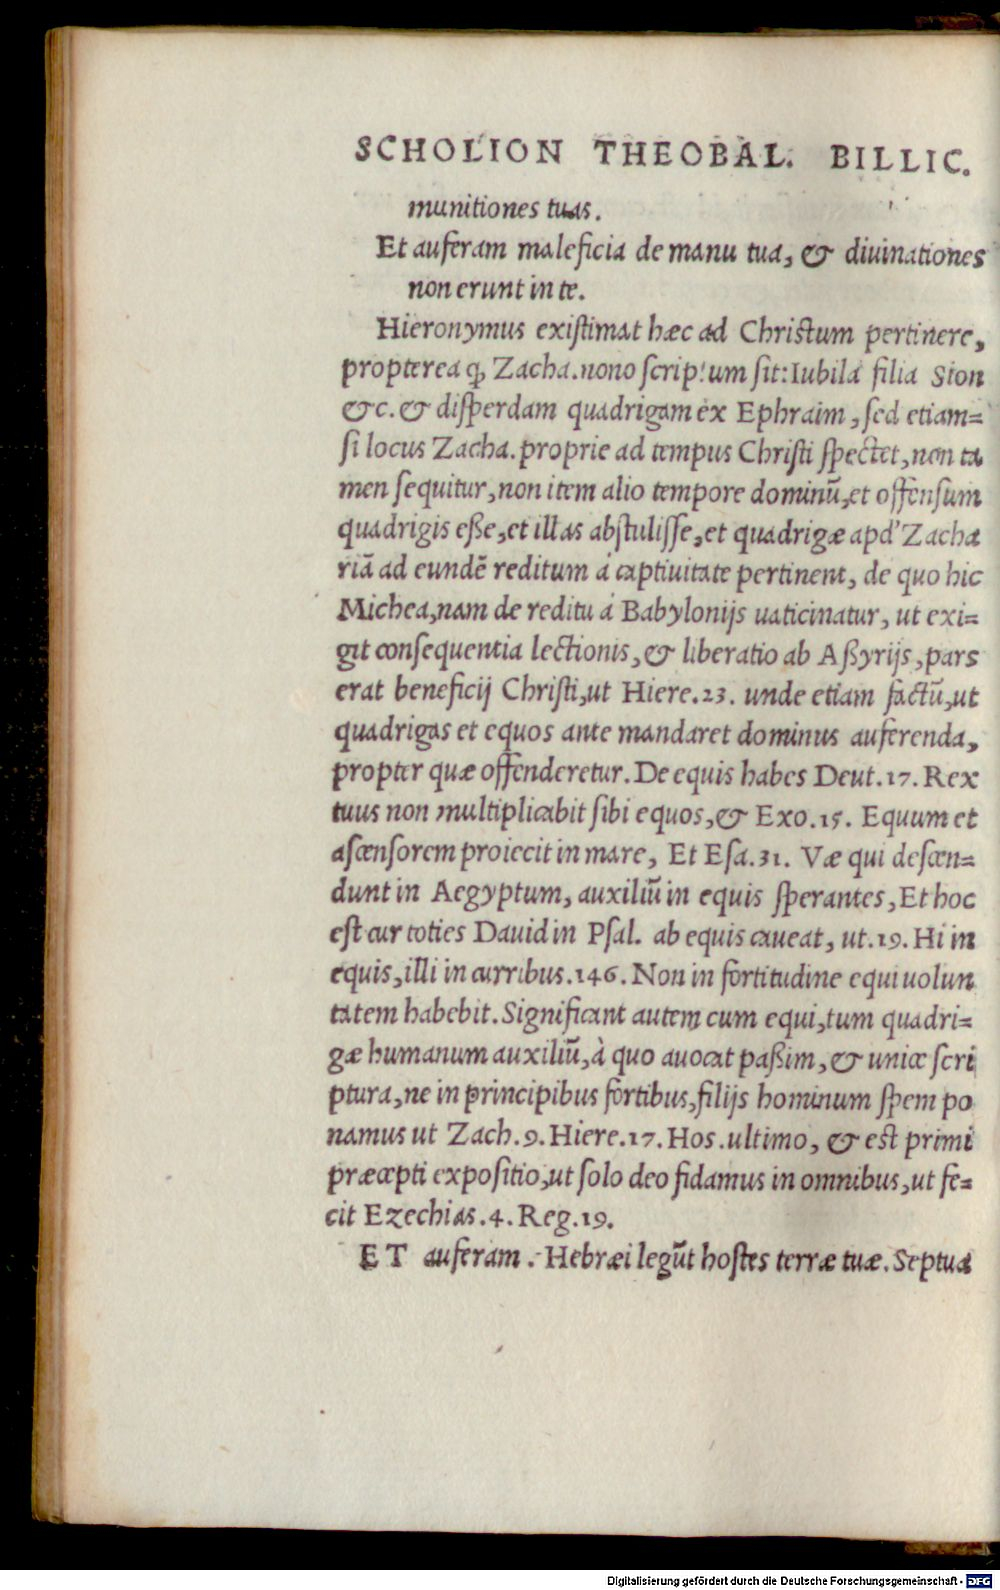 SCHOLION THEOBAL. BILLIC.
munitiones tuas.
Et auferam maleficia de manu tua, & diuinationes
non erunt in te.
Hieronymus existimat hæc ad Christum pertinere,
propterea ꝙ Zacha. nono scriptum sit: Iubila filia Sion
&c. & disperdam quadrigam ex Ephraim, sed etiam=
si locus Zacha. proprie ad tempus Christi spectet, non ta
men sequitur, non item alio tempore dominũ, et offensum
quadrigis eße, et illas abstulisse, et quadrigæ apd' Zacha
riã ad eundẽ reditum á captiuitate pertinent, de quo hic
Michea, nam de reditu á Babylonijs uaticinatur, ut exi=
git consequentia lectionis, & liberatio ab Aßyrijs, pars
erat beneficij Christi, ut Hiere. 23. unde etiam factũ, ut
quadrigas et equos ante mandaret dominus auferenda,
propter quæ offenderetur. De equis habes Deut. 17. Rex
tuus non multiplicabit sibi equos, & Exo. 15. Equum et
ascensorem proiecit in mare, Et Esa. 31. Væ qui descen=
dunt in Aegyptum, auxiliũ in equis sperantes, Et hoc
est cur toties Dauid in Psal. ab equis caueat, ut. 19. Hi in
equis, illi in curribus. 146. Non in fortitudine equi uolun
tatem habebit. Significant autem cum equi, tum quadri=
gæ humanum auxiliũ, à quo auocat paßim, & unice scri
ptura, ne in principibus fortibus, filijs hominum spem po
namus ut Zach. 9. Hiere. 17. Hos. ultimo, & est primi
præcepti expositio, ut solo deo fidamus in omnibus, ut fe=
cit Ezechias. 4. Reg. 19.
ET auferam. Hebræi legũt hostes terræ tuæ. Septua
Digitalisierung gefördert durch die Deutsche Forschungsgemeinschaft - DFG